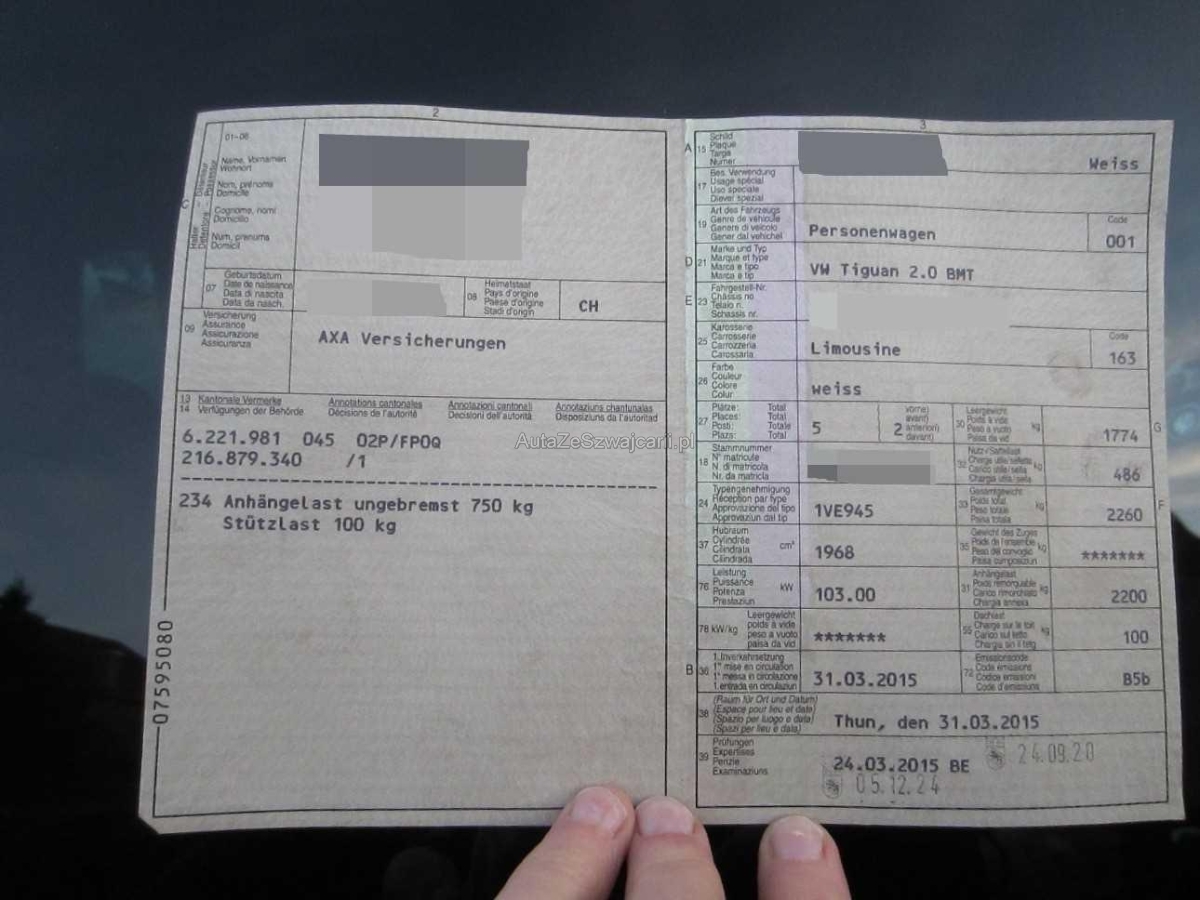 2
01-06
C
Halter Détenteur
Detentore Possessur
Name, Vornamen
Wohnort
Nom, prénoms
Domicile
Cognome, nomi
Domicilio
Num, prenums
Domicil
07
Geburtsdatum
Date de naissance
Data di nascita
Data da nasch.
08
Heimatstaat
Pays d'origine
Paese d'origine
Stadi d'origin
CH
09
Versicherung
Assurance
Assicurazione
Assicuranza
AXA Versicherungen
13 Kantonale Vermerke Annotations cantonales Annotazioni cantonali Annotaziuns chantunalas
14 Verfügungen der Behörde Décisions de l'autorité Decisioni dell'autorità Disposiziuns da l'autoritad
6.221.981 045 02P/FP0Q
216.879.340 /1
234 Anhängelast ungebremst 750 kg
Stützlast 100 kg
07595080
AutaZeSzwajcarii.pl
3
A 15
Schild
Plaque
Targa
Numer
Weiss
17
Bes. Verwendung
Usage spécial
Uso speciale
Diever spezial
19
Art des Fahrzeugs
Genre de véhicule
Genere di veicolo
Gener dal vehichel
Personenwagen
Code
001
D 21
Marke und Typ
Marque et type
Marca e tipo
Marca e tip
VW Tiguan 2.0 BMT
E 23
Fahrgestell-Nr.
Châssis no
Telaio n.
Schassis nr.
25
Karosserie
Carrosserie
Carrozzeria
Carossaria
Limousine
Code
163
26
Farbe
Couleur
Colore
Colur
weiss
27
Plätze: Total
Places: Total
Posti: Totale
Plazs: Total
5
2
vorne)
avant)
anteriori)
davant)
30
Leergewicht
Poids à vide
Peso a vuoto
Paisa da vid
kg
1774
G
18
Stammnummer
N° matricule
N. di matricola
Nr. da matricla
32
Nutz-/Sattellast
Charge utile/sellette
Carico utile/sella
Chargia utila/sella
kg
486
24
Typengenehmigung
Réception par type
Approvazione del tipo
Approvaziun dal tip
1VE945
33
Gesamtgewicht
Poids total
Peso totale
Paisa totala
kg
2260
F
37
Hubraum
Cylindrée
Cilindrata
Cilindrada
cm³
1968
35
Gewicht des Zuges
Poids de l'ensemble
Peso del convoglio
Paisa cumposiziun
kg
*******
76
Leistung
Puissance
Potenza
Prestaziun
kW
103.00
31
Anhängelast
Poids remorquable
Carico rimorchiato
Chargia annexa
kg
2200
78 kW/kg
Leergewicht
poids à vide
peso a vuoto
paisa da vid
*******
55
Dachlast
Charge sur le toit
Carico sul tetto
Chargia sin il tetg
kg
100
B 36
1. Inverkehrsetzung
1re mise en circulation
1a messa in circolazione
1. entrada en circulaziun
31.03.2015
72
Emissionscode
Code émissions
Codice emissioni
Code d'emissiuns
B5b
38
(Raum für Ort und Datum)
(Espace pour lieu et date)
(Spazio per luogo e data)
(Spazi per lieu e data)
Thun, den 31.03.2015
39
Prüfungen
Expertises
Perizie
Examinaziuns
24.03.2015 BE
24.09.20
05.12.24